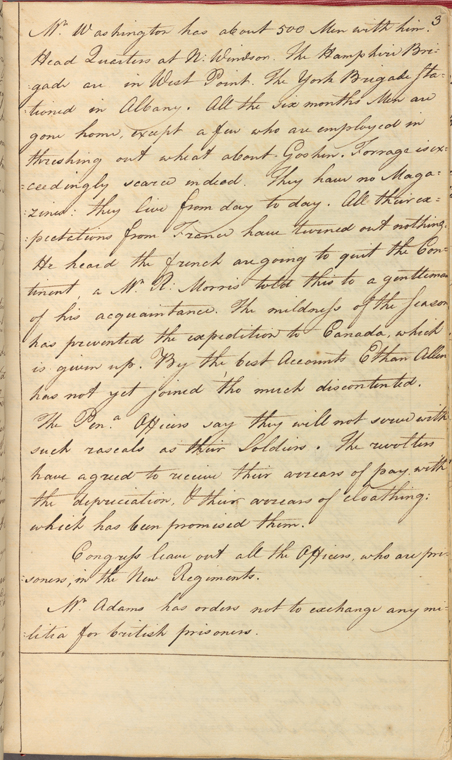 3
Mr. Washington has about 500 Men with him.
Head Quarters at N: Windsor. The Hampshire Bri-
gade are in West Point. The York Brigade Sta-
:tioned in Albany. All the Six months Men are
gone home, except a few who are employed in
threshing out wheat about Goshen. Forrage is ex-
:ceedingly scarce indeed. They have no Maga-
:zines: they live from day to day. All their ex-
:pectations from France have turned out nothing.
He heard the french are going to quit the Con-
:tinent a Mr. R. Morris told this to a gentleman
of his acquaintance. The mildness of the Season
has prevented the expedition to Canada, which
is given up. By the best Accounts Ethan Allen
has not yet joined tho much discontented.
The Pen.a Officers say they will not serve with
such rascals as their Soldiers. The revolters
have agreed to receive their arrears of pay, with
the depreciation, & their arrears of cloathing:
which has been promised them.
Congress leave out all the Officers, who are pri-
:soners, in the New Regiments.
Mr. Adams has orders not to exchange any mi-
:litia for british prisoners.